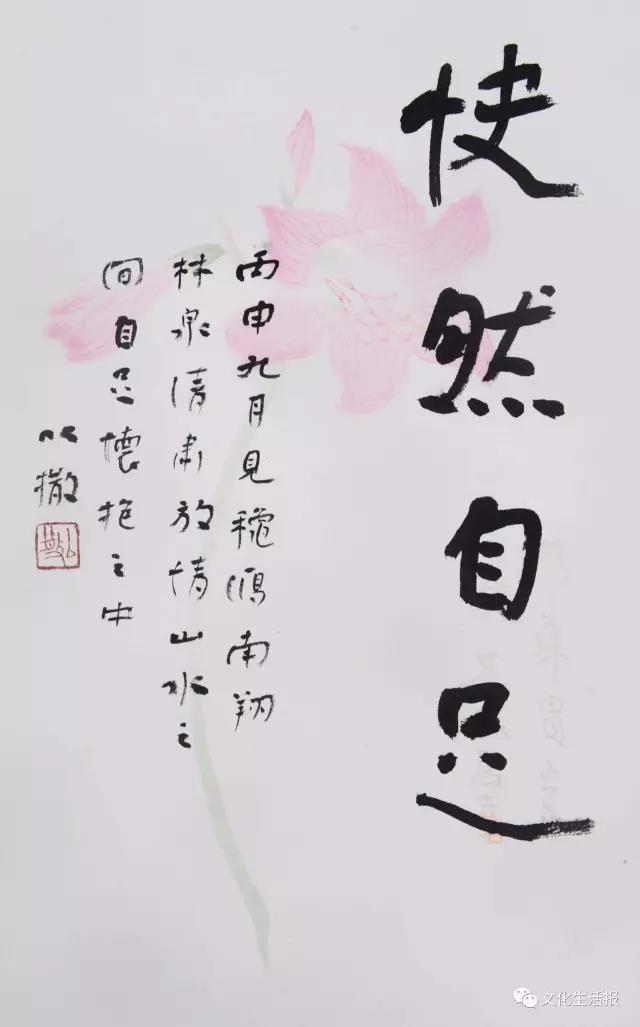 快然自足
丙申九月見穐鴻南翔
林泉清肅放情山水之
间自足懷抱之中
以撒
文化生活报